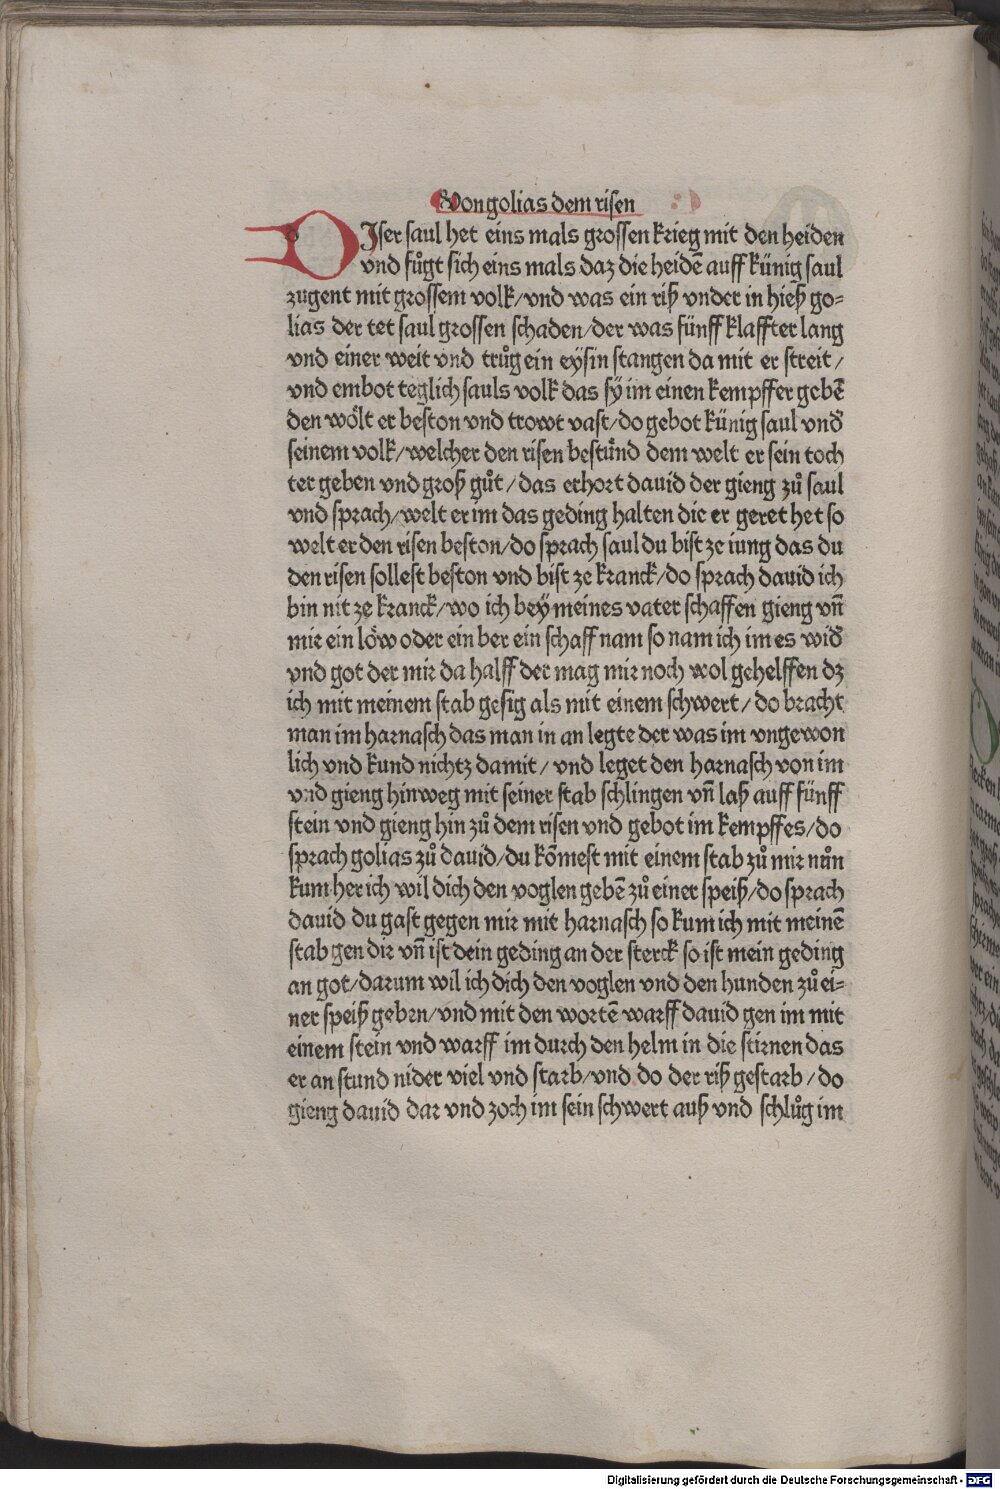 Von golias dem risen
DIser saul het eins mals grossen krieg mit den heiden
vnd fůgt sich eins mals daz die heidē auff künig saul
zugent mit grossem volk/vnd was ein riß vnder in hieß go=
lias der tet saul grossen schaden/der was fünff klaffter lang
vnd einer weit vnd trůg ein eÿsin stangen da mit er streit/
vnd embot teglich sauls volk das sÿ im einen kempffer gebē
den wölt er beston vnd trowt vast/do gebot künig saul vnd
seinem volk/welcher den risen bestünd dem welt er sein toch
ter geben vnd groß gůt/das erhort dauid der gieng zů saul
vnd sprach/welt er im das geding halten die er geret het so
welt er den risen beston/do sprach saul du bist ze iung das du
den risen sollest beston vnd bist ze kranck/do sprach dauid ich
bin nit ze kranck/wo ich beÿ meines vater schaffen gieng vn̄
mir ein löw oder ein ber ein schaff nam so nam ich im es wid
vnd got der mir da halff der mag mir noch wol gehelffen dz
ich mit meinem stab gesig als mit einem schwert/do bracht
man im harnasch das man in an legte der was im vngewon
lich vnd kund nichtz damit/vnd leget den harnasch von im
vnd gieng hinweg mit seiner stab schlingen vn̄ laß auff fünff
stein vnd gieng hin zů dem risen vnd gebot im kempffes/do
sprach golias zů dauid/du kōmest mit einem stab zů mir nůn
kum her ich wil dich den voglen gebē zů einer speiß/do sprach
dauid du gast gegen mir mit harnasch so kum ich mit meinē
stab gen dir vn̄ ist dein geding an der sterck so ist mein geding
an got/darum wil ich dich den voglen vnd den hunden zů ei=
ner speiß geben/vnd mit den wortē warff dauid gen im mit
einem stein vnd warff im durch den helm in die stirnen das
er an stund nider viel vnd starb/vnd do der riß gestarb/do
gieng dauid dar vnd zoch im sein schwert auß vnd schlůg im
Digitalisierung gefördert durch die Deutsche Forschungsgemeinschaft - DFG